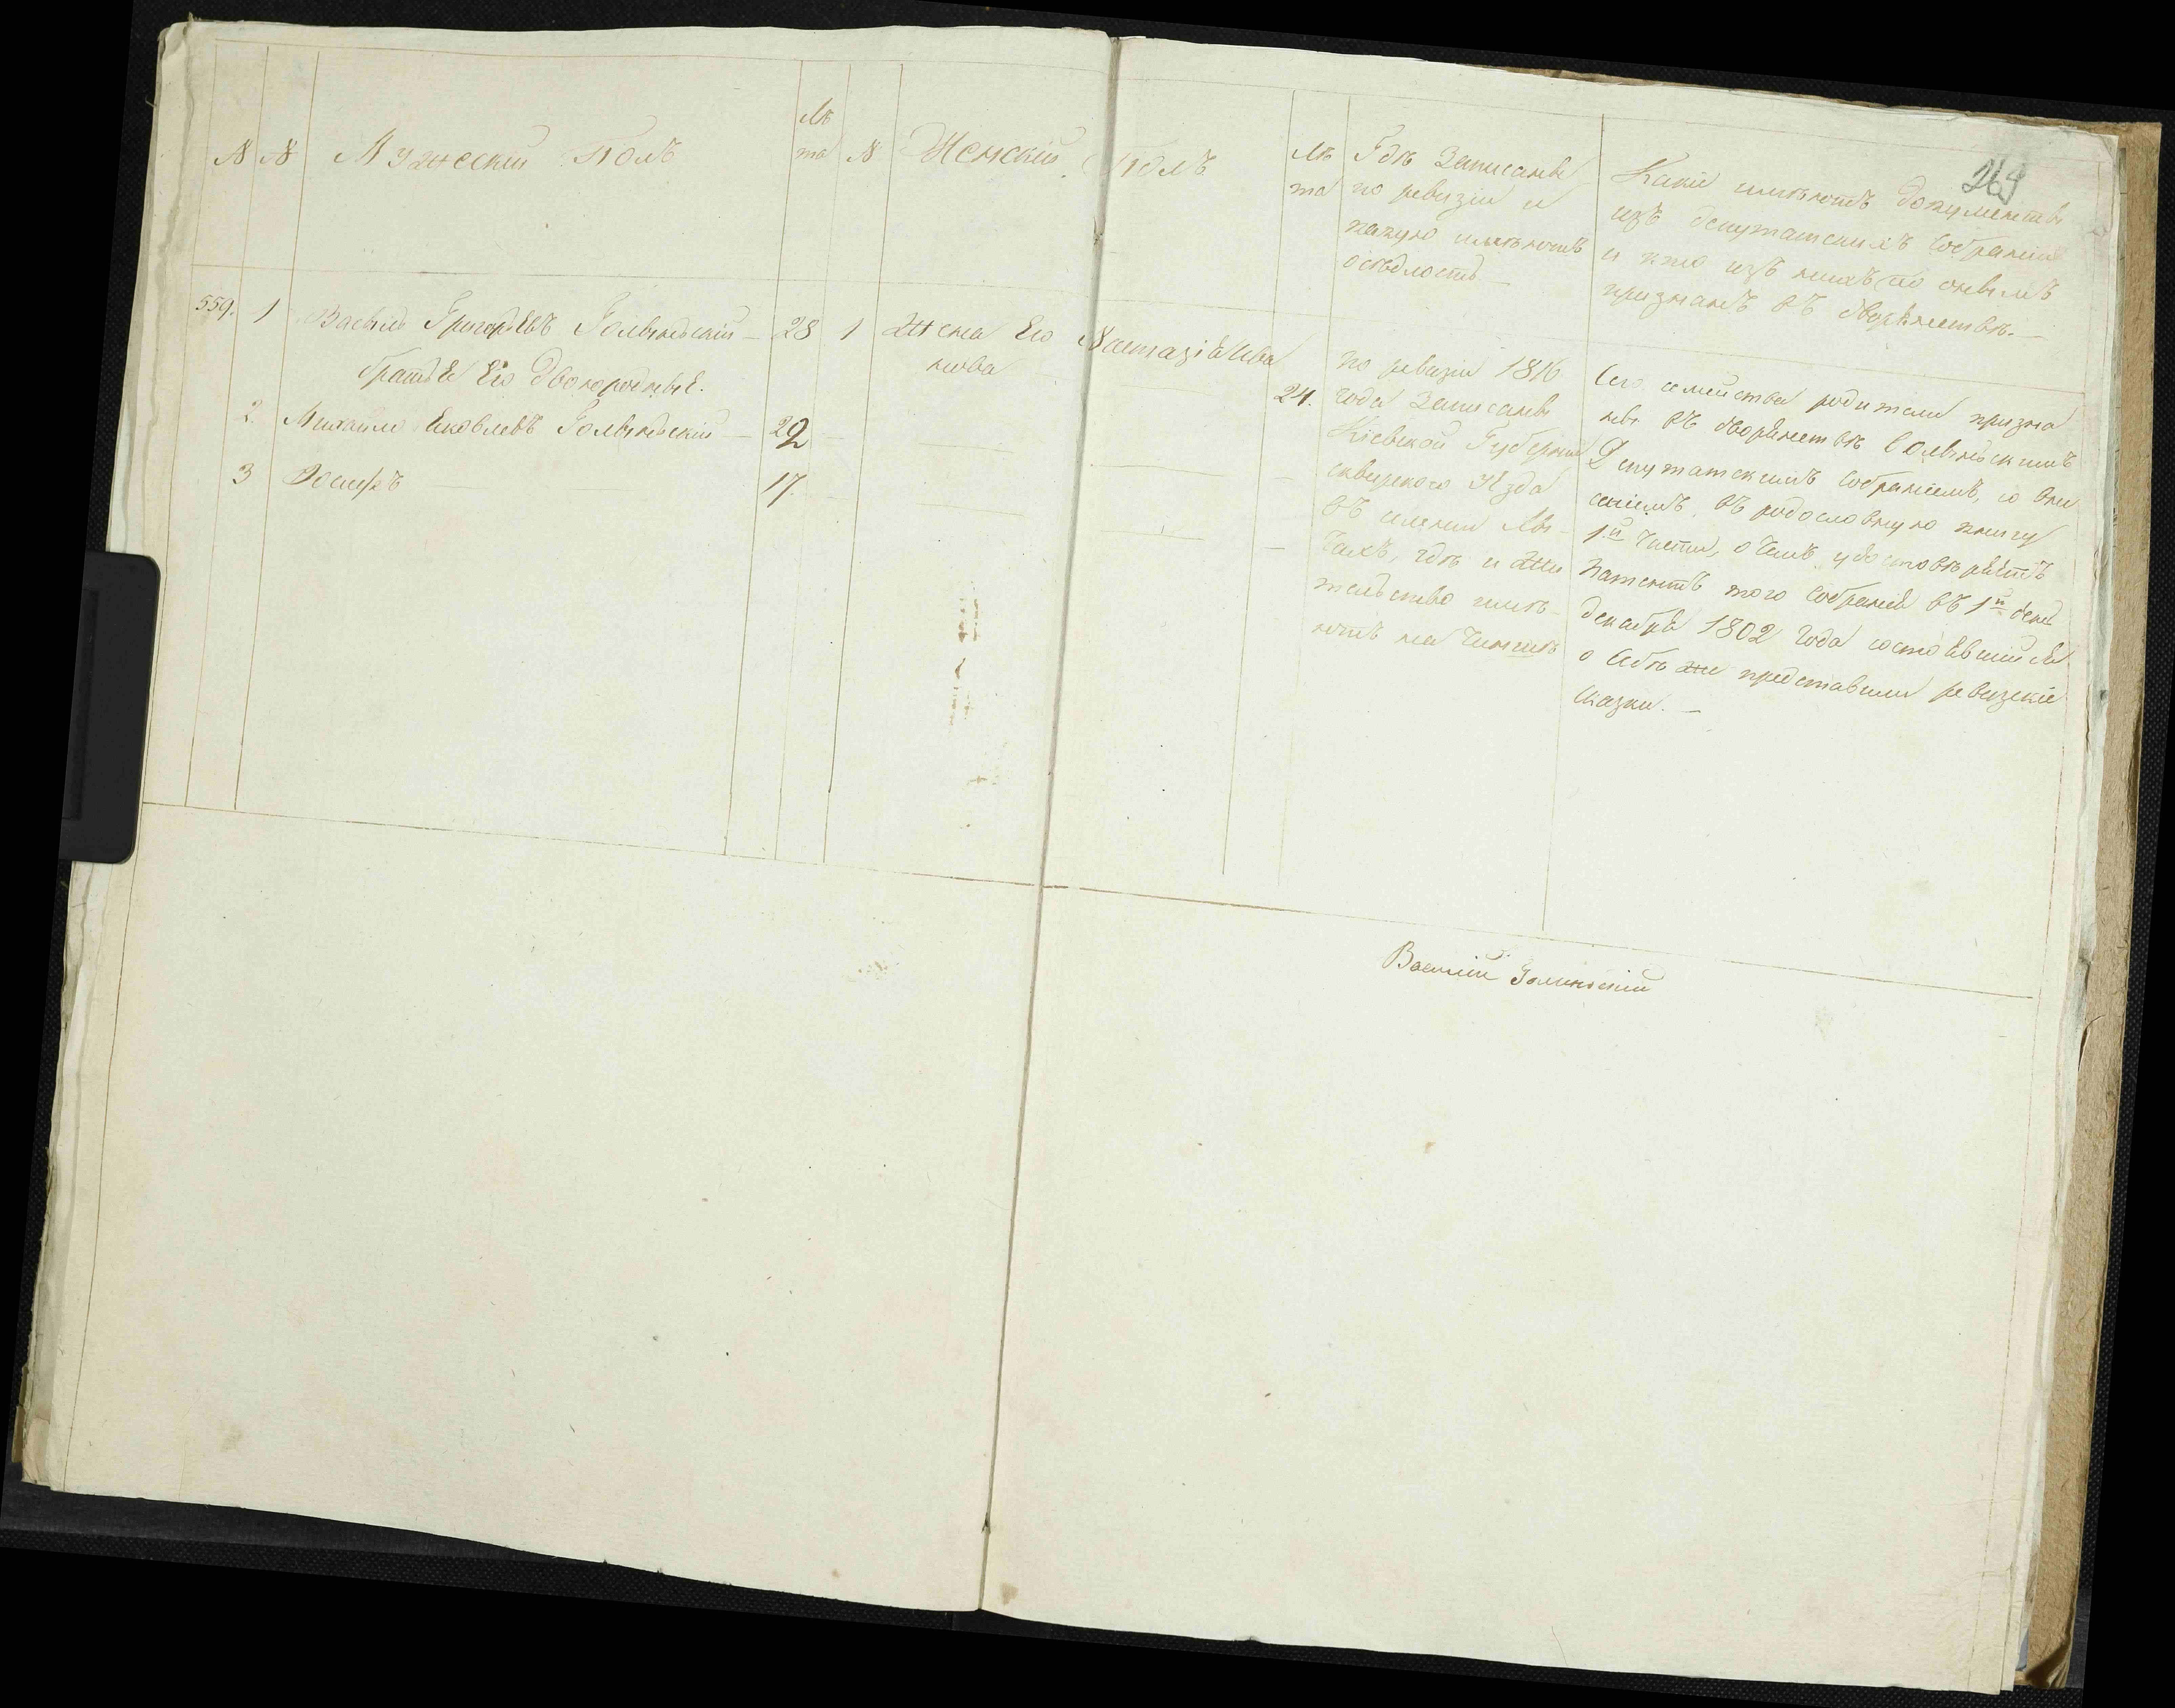 269
№ № Мужескій Полъ Лѣ
та № Женскій Полъ Лѣ
та
Гдѣ Записаны
по ревизіи и
какую имѣютъ
осѣдлость
Какіе имѣютъ документы
изъ депутатскихъ Собраній
и кто изъ нихъ по онымъ
признанъ въ дворянствѣ. —
559. 1 Василь Григорьевъ Голыньскій — 28 1 Жена Его Настазія Ива
нова 24.
братья Его двоюродные.
2. Михайло Яковлевъ Голыньскій — 22
3 Іосифъ 17.
по ревизіи 1816
года Записаны
Кіевской Губерніи
сквирского уѣзда
въ имении
гдѣ и Жи
тельство имѣ-
ютъ на Чиншѣ
Сего семейства родители призна
ны въ дворянствѣ Волыньскимъ
Депутатскимъ Собраніемъ, со вне
сеніемъ въ родословную книгу
1й Части, о чемъ удостовѣряетъ
Патентъ того Собранія въ 1й день
декабря 1802 года состоявшийся
о Себѣ же представили ревизскіе
сказки. —
Василій Голиньскій